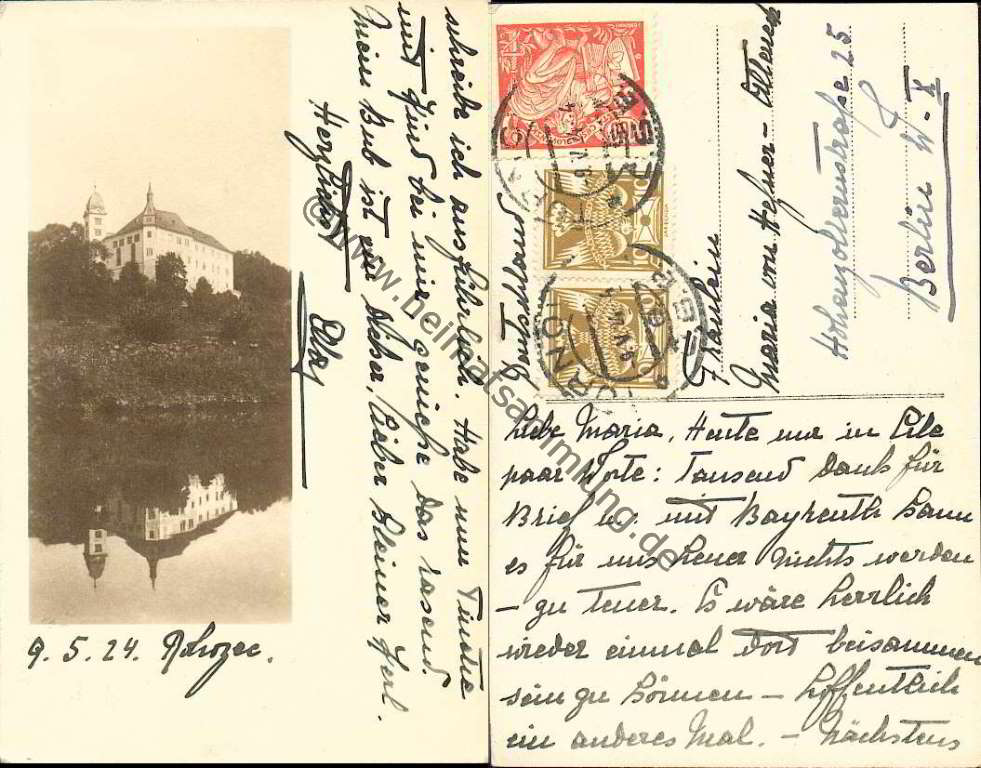 Fräulein
Maria von Hefner-Alteneck
Hohenzollernstraße 25
Berlin W. X
Liebe Maria, Heute nur in Eile
paar Worte: Tausend Dank für
Brief u. mit Bayreuth kann
es für uns heuer nichts werden
– zu teuer. Es wäre herrlich
wieder einmal dort beisammen
sein zu können – hoffentlich
ein anderes Mal. – Nächstens
schreibe ich ausführlich. Habe nun Tinctie
und Kind bei mir genieße das rasend.
Mein Bub ist ein lieber kleiner Kerl.
Herzlichst
Elsa
9.5.24. Rohozec.
© www.heimatsammlung.de